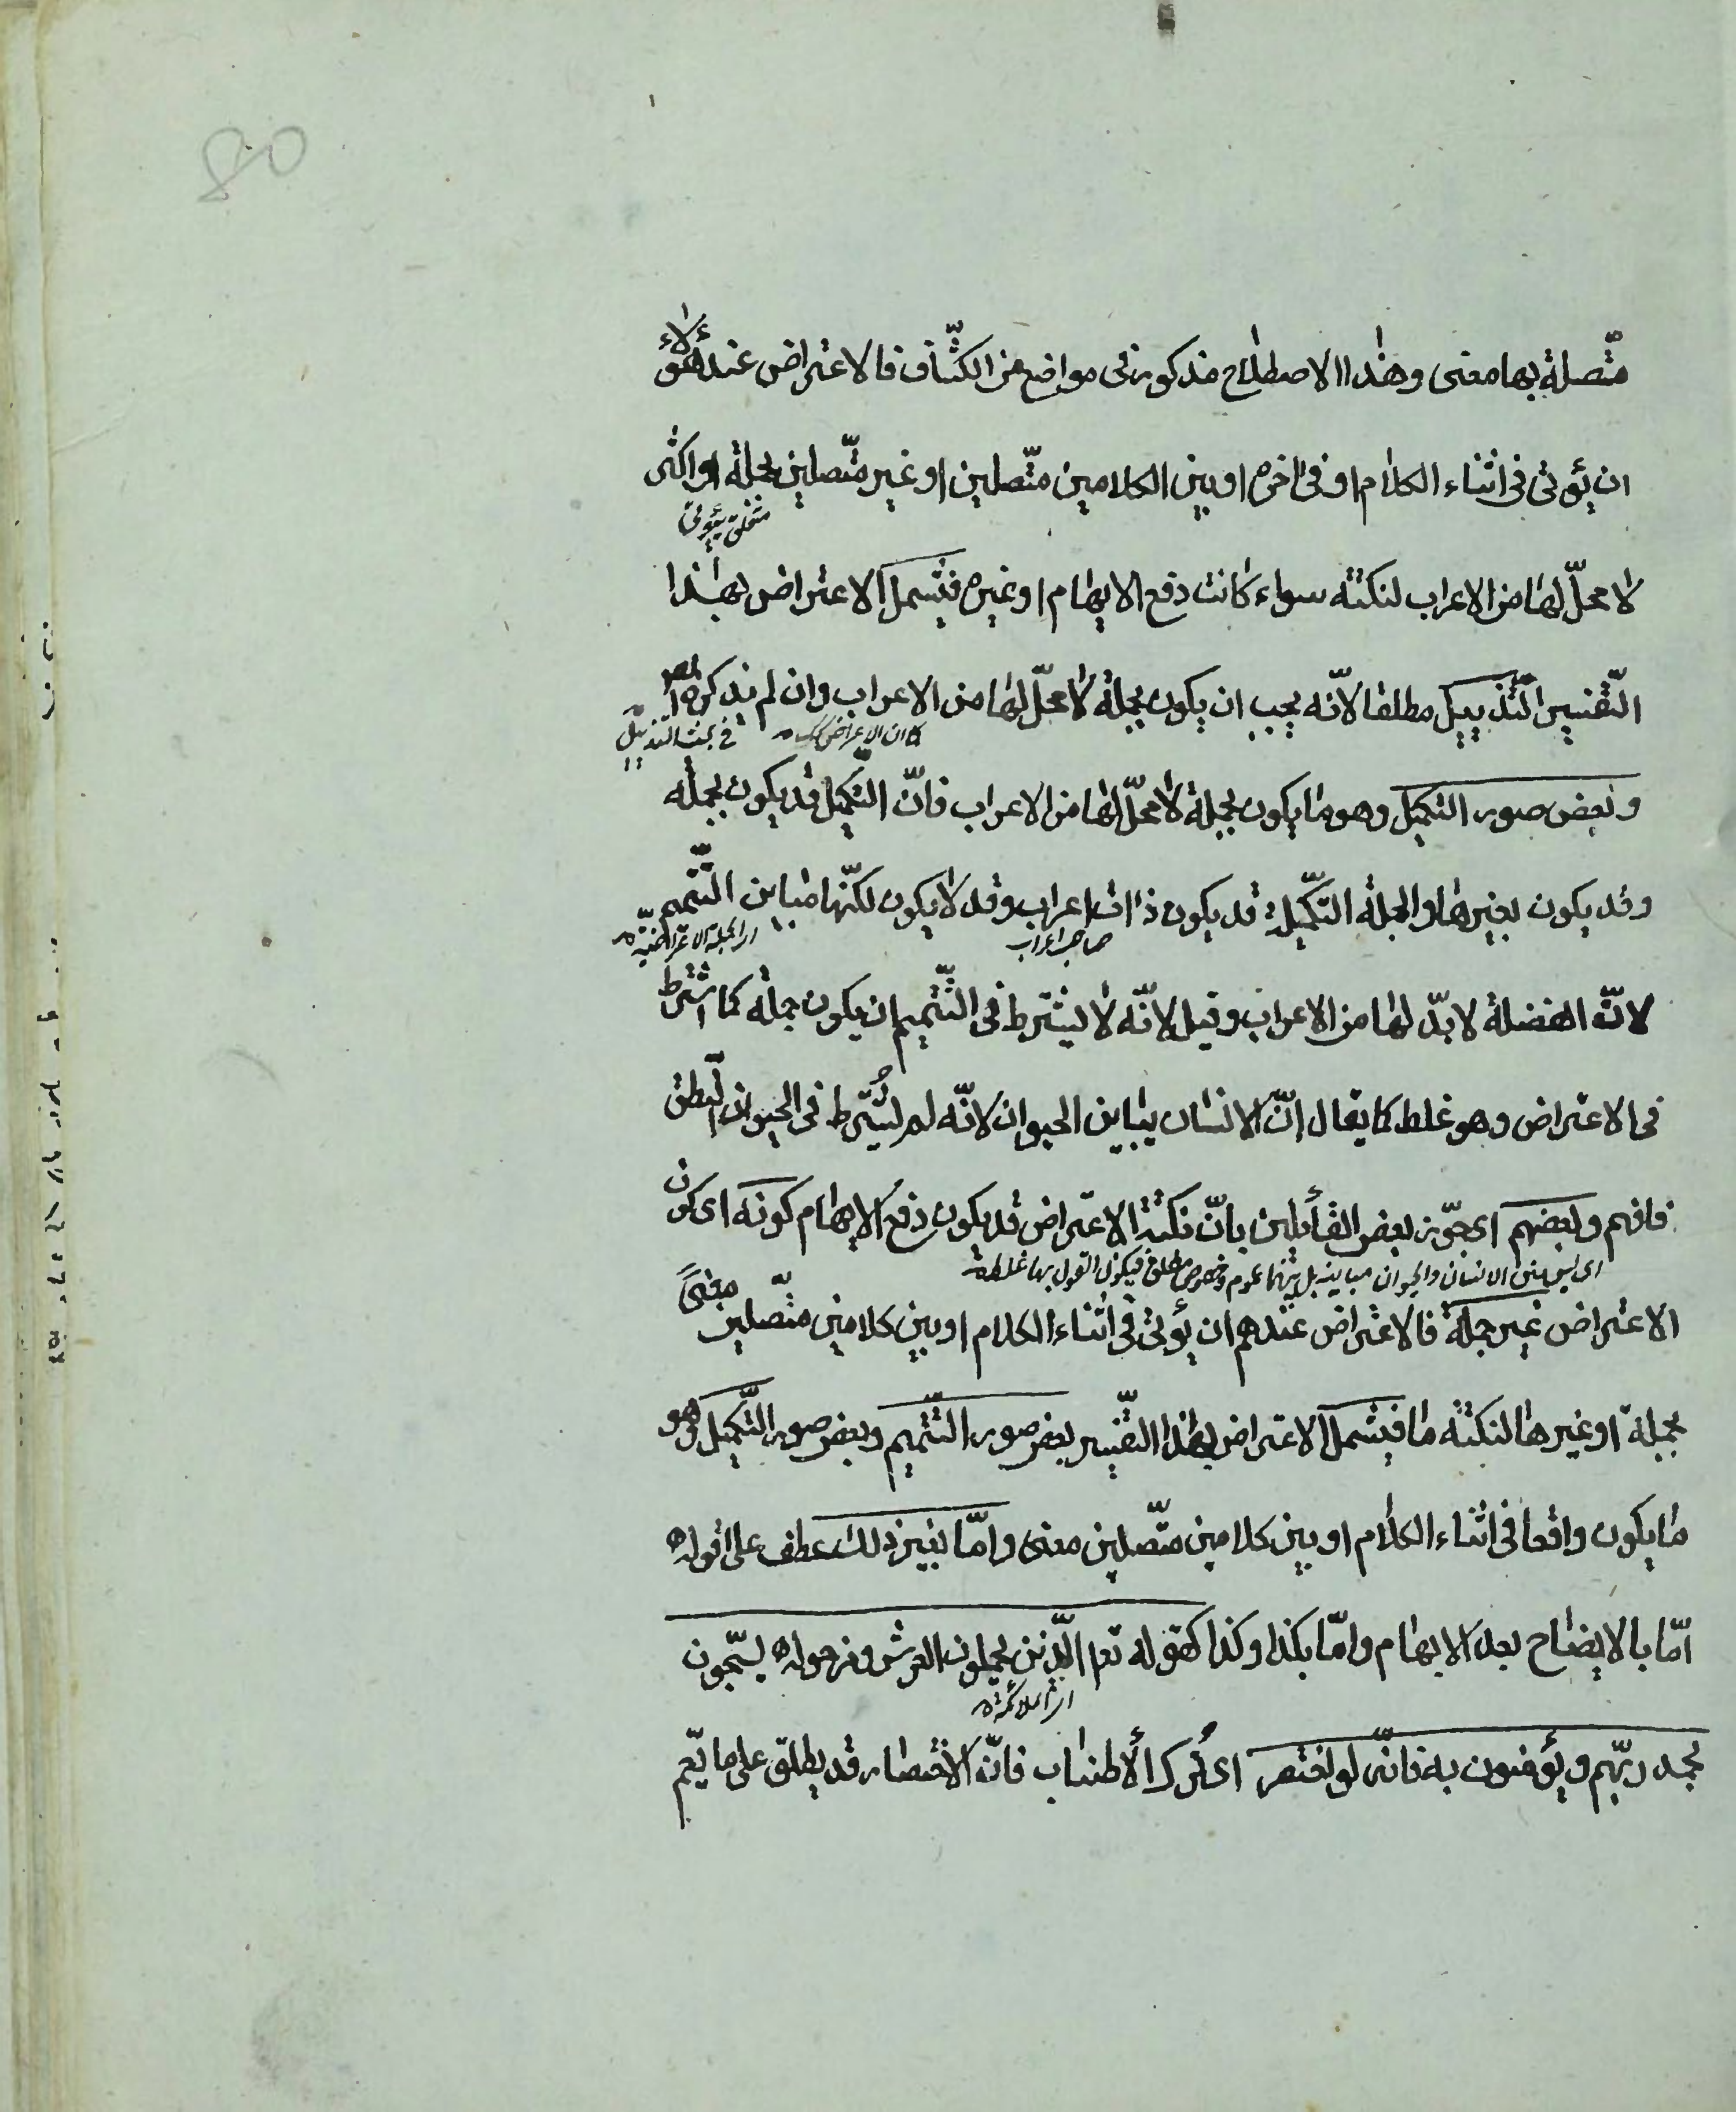 80
متّصلة بها معنى وهذا الاصطلاح مذكور فى مواضع من الكشّاف فالاعتراض عند هؤلاء
ان يؤتى فى اثناء الكلام او فى اخره او بين الكلامين متّصلين او غير متّصلين بجملة او اكثر
متعلق بيؤتى
لا محلّ لها من الاعراب لنكتة سواء كانت دفع الايهام او غيره فيشمل الاعتراض بهذا
التّفسير التّذييل مطلقا لانّه يجب ان يكون بجملة لا محلّ لها من الاعراب وان لم يذكره المص
كما ان الاعتراض كك
فى بحث التذييل
وبعض صور التكميل وهو ما يكون بجملة لا محلّ لها من الاعراب فانّ التّكميل قد يكون بجملة
وقد يكون بغيرها والجملة التّكميلية قد يكون ذات اعراب وقد لا يكون لكنّها مباين التّتميم
صاحب اعراب
اى الجملة الاعتراضيّة
لانّ الفضلة لا بدّ لها من الاعراب وقيل لانّه لا يشترط فى التّتميم ان يكون جملة كما اشترط
فى الاعتراض وهو غلط كما يقال انّ الانسان يباين الحيوان لانّه لم يُشترط فى الحيوان النّطق
فافهم وبعضهم اى جوّز بعض القائلين بانّ نكتة الاعتراض قد يكون دفع الايهام كونه اى كون
اى ليس بين الانسان والحيوان مباينة بل بينهما عموم وخصوص مطلق فيكون القول بها غلط
الاعتراض غير جملة فالاعتراض عندهم ان يؤتى فى اثناء الكلام او بين كلامين متّصلين معنىً
بجملة او غيرها لنكتة ما فيشمل الاعتراض بهذا التّفسير بعض صور التّتميم وبعض صور التّكميل وهو
ما يكون واقعا فى اثناء الكلام او بين كلامين متّصلين معنى وامّا بغير ذلك عطف على قوله
امّا بالايضاح بعد الابهام وامّا بكذا وكذا كقوله تعا الّذين يحملون العرش ومن حوله يسبّحون
اى الملائكة
بحمد ربّهم ويؤمنون به فانّه لو اختصر اى تُرك الاطناب فانّ الاختصار قد يطلق على ما يعمّ